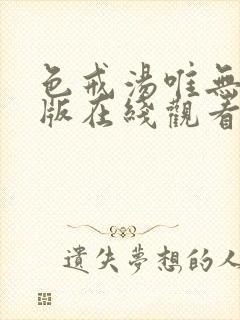 色戒湯唯無
版在綫觀看
遺失夢想的人